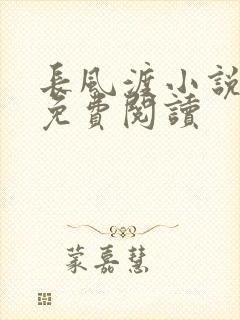 長風渡小說
免費閱讀
蒙嘉慧